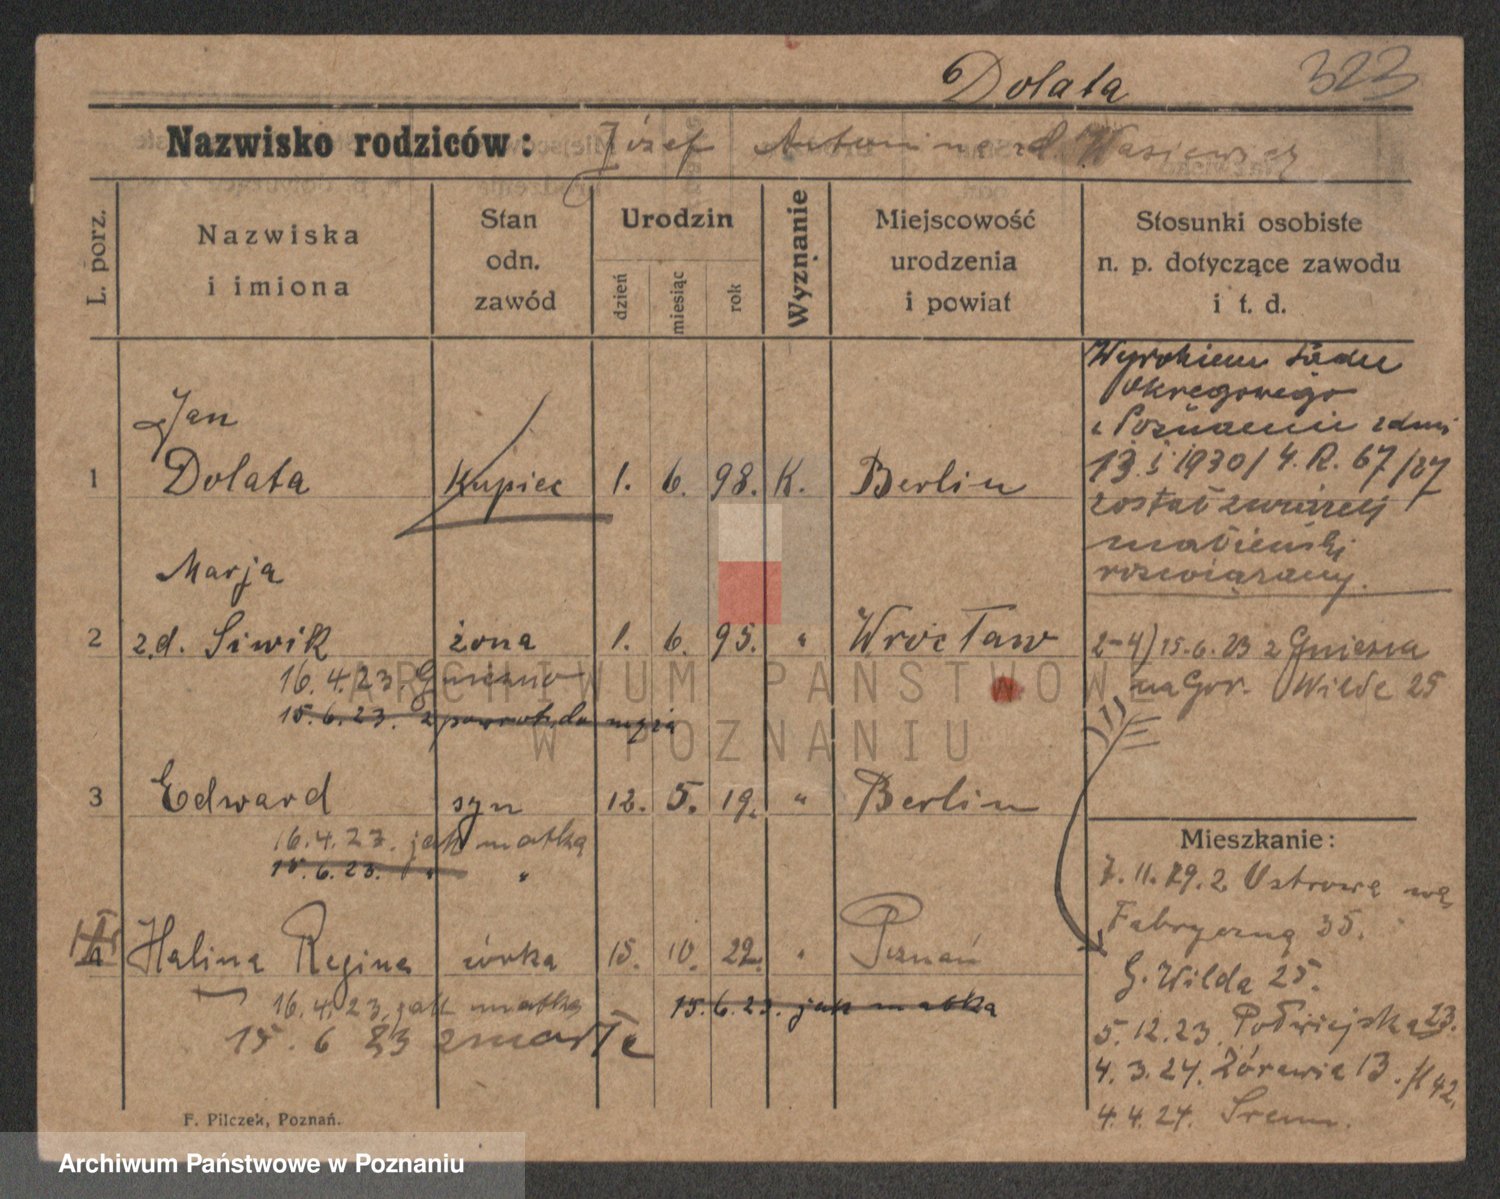 Dolata 323
Nazwisko rodziców: Józef Antonina z d. Wasiewicz
L. porz.
Nazwiska i imiona
Stan odn. zawód
Urodzin
dzień
miesiąc
rok
Wyznanie
Miejscowość urodzenia i powiat
Stosunki osobiste n. p. dotyczące zawodu i t. d.
Jan
1 Dolata Kupiec 1. 6. 98. K. Berlin
Wyrokiem Sądu
Okręgowego
w Poznaniu z dnia
13. I 1930 / 4. R. 67/27
został związek
małżeński
rozwiązany.
Marja
2 z.d. Siwik żona 1. 6. 95. " Wrocław
16.4.23. Gniezno
15.6.23. z powrot. do męża
2-4) 15.6.23 z Gniezna
na Gór. Wilde 25
3 Edward syn 12. 5. 19. " Berlin
16.4.23. jak matka
15.6.23. " "
4 Halina Regina córka 15. 10. 22. " Poznań
16.4.23. jak matka
15.6.23. jak matka
15.6 23 zmarła
Mieszkanie:
7.11.22. z Ostrowa na
Fabryczną 35.
G. Wilda 25.
5.12.23. Półwiejska 23.
4.3.24. Żórawia 13.
4.4.24. Śrem.
F. Pilczek, Poznań.
ARCHIWUM PAŃSTWOWE
W POZNANIU
Archiwum Państwowe w Poznaniu